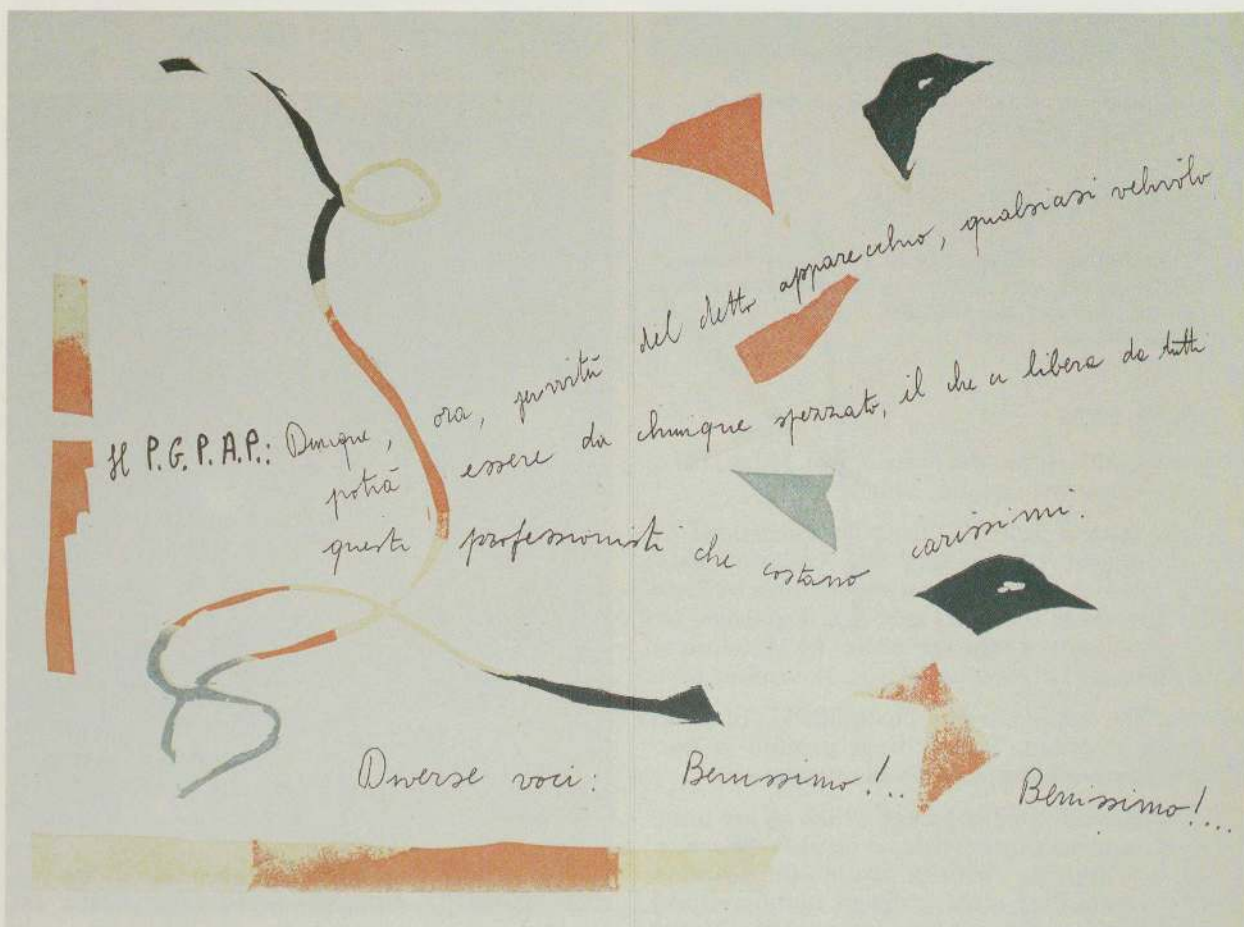 Il P.G.P.A.P.: Dunque, ora, per virtù del detto apparecchio, qualsiasi velivolo
potrà essere da chiunque spezzato, il che ci libera da tutti
questi professionisti che costano carissimi.
Diverse voci: Benissimo!.. Benissimo!...